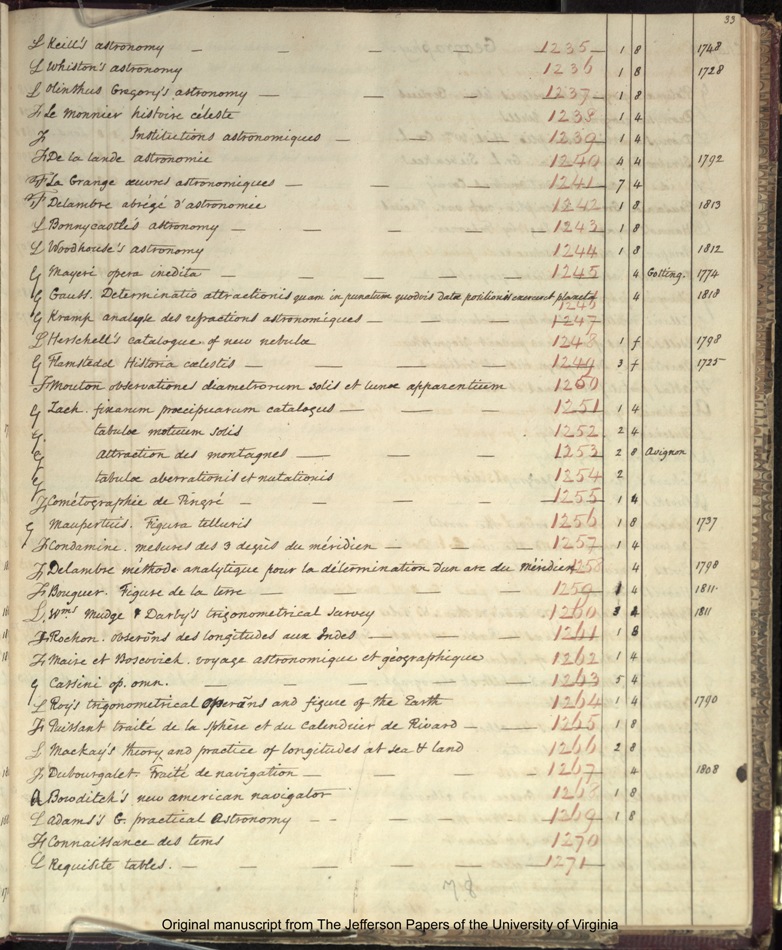 33
L Keill's astronomy — — — 1235 1 8 1748
L Whiston's astronomy 1236 1 8 1728
L Olinthus Gregory's astronomy — — — 1237 1 8
F Le Monnier histoire céleste 1238 1 4
F Institutions astronomiques — — — 1239 1 4
F De la lande astronomie 1240 4 4 1792
F La Grange œuvres astronomiques — — — 1241 7 4
F Delambre abrégé d'astronomie 1242 1 8 1813
L Bonnycastle's astronomy — — — 1243 1 8
L Woodhouse's astronomy 1244 1 8 1812
G Mayeri opera inedita — — — 1245 4 Gotting. 1774
G Gauss. Determinatio attractionis quam in punctum quodvis datæ positionis exerceret planeta 1246 4 1818
G Kramp analyse des refractions astronomiques — — — 1247
L Herschell's catalogue of new nebulæ 1248 1 f 1798
G Flamstedd Historia cœlestis — — — 1249 3 f 1725
F Mouton observationes diametrorum solis et lunæ apparentium 1250
G Zach. fixarum præcipuarum catalogus — — — 1251 1 4
G. tabulæ motuum solis 1252 2 4
G attraction des montagnes — — — 1253 2 8 Avignon
G tabulæ aberrationis et nutationis 1254 2
F Cométographie de Pingré — — — 1255 1 4
G Maupertuis. Figura telluris 1256 1 8 1737
F Condamine. mesures des 3 degrès du méridien — — — 1257 1 4
F Delambre méthode analytique pour la détermination d'un arc du Méridien 1258 4 1798
F Bouguer. Figure de la terre — — — 1259 1 4 1811.
L. Wms Mudge & Darby's trigonometrical survey 1260 3 4 1811
F Rochon. observns des longitudes aux Indes — — — 1261 1 8
F Maire et Boscovich. voyage astronomique et géographique 1262 1 4
G Cassini op. omn. — — — 1263 5 4
L Roy's trigonometrical operans and figure of the Earth 1264 1 4 1790
F Puissant traité de la sphère et du Calendrier de Rivard — — 1265 1 8
L Mackay's theory and practice of longitudes at sea & land 1266 2 8
F Dubourguet. Traité de navigation — — — 1267 4 1808
A Bowditch's new american navigator 1268 1 8
L Adams's G. practical Astronomy — — — 1269 1 8
F Connaissance des tems 1270
L Requisite tables. — — — 1271
78
Original manuscript from The Jefferson Papers of the University of Virginia